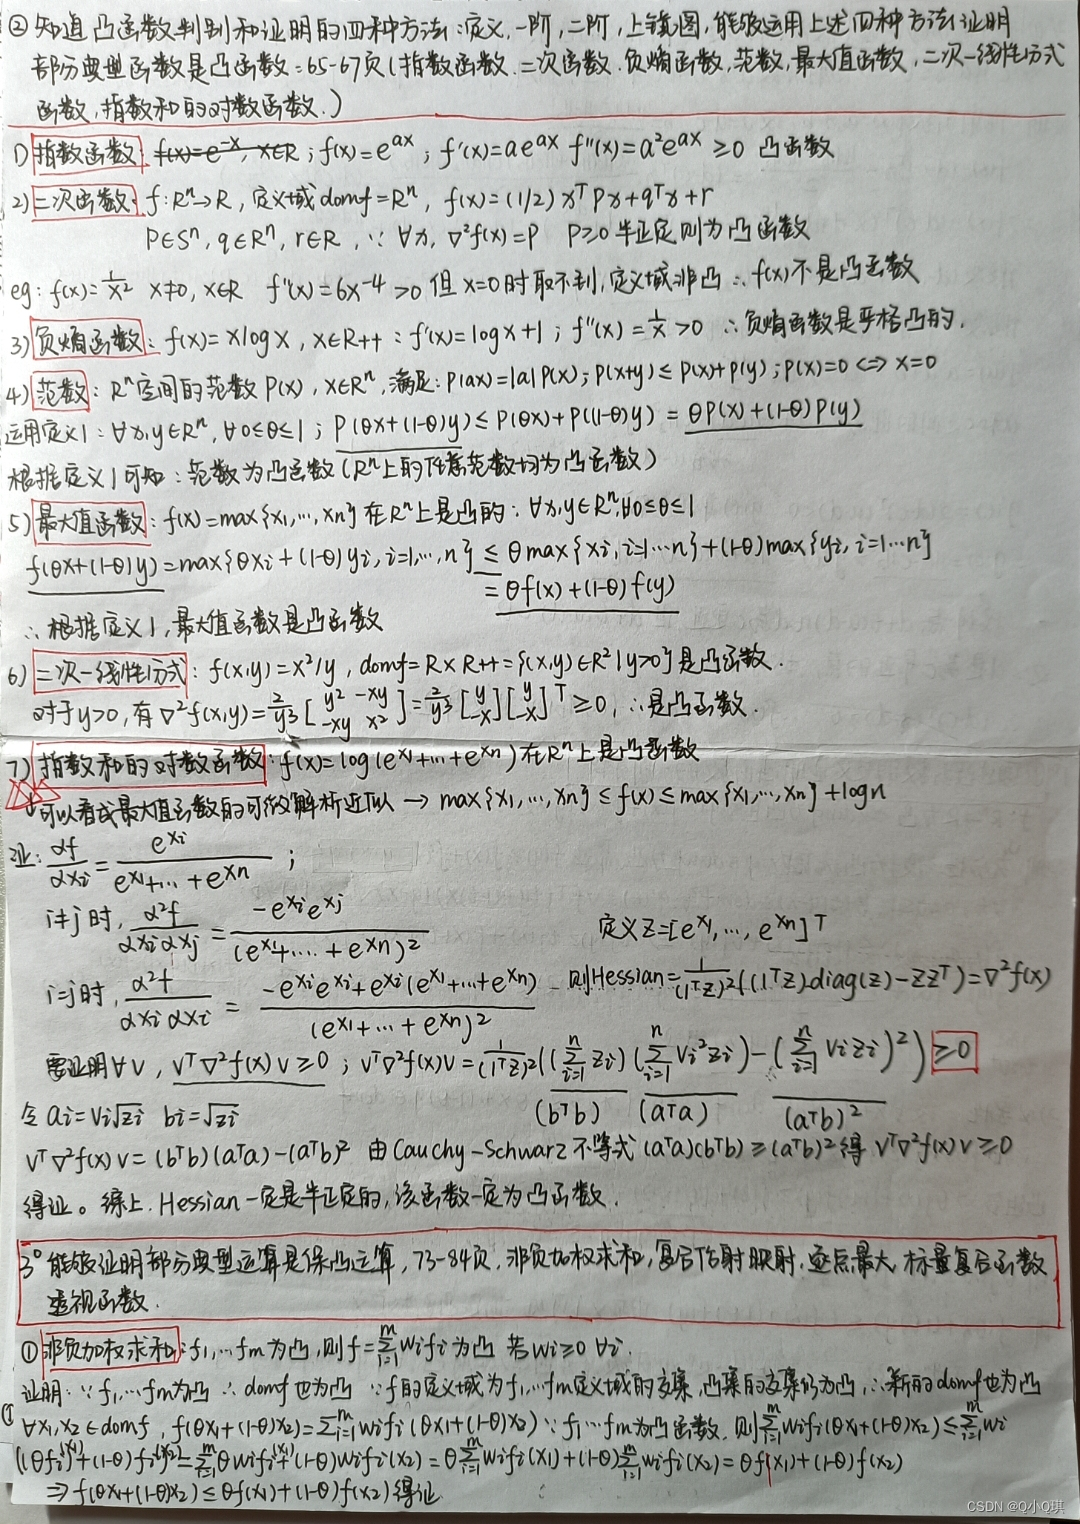 ② 知道凸函数判别和证明的四种方法:定义,一阶,二阶,上镜图,能够运用上述四种方法证明
部分典型函数是凸函数:65-67页(指数函数.二次函数.负熵函数,范数,最大值函数,二次一线性分式
函数,指数和的对数函数.)
1) 指数函数: f(x)=e^{-x}, x∈R; f(x)=e^{ax}; f'(x)=ae^{ax} f''(x)=a²e^{ax} ≥0 凸函数
2) 二次函数: f:Rⁿ→R, 定义域domf=Rⁿ, f(x)=(1/2)xᵀPx+qᵀx+r
P∈Sⁿ, q∈Rⁿ, r∈R, ∵ ∀x, ∇²f(x)=P P≥0 半正定则为凸函数
eg: f(x)=1/x² x≠0, x∈R f''(x)=6x^{-4}>0 但x=0时取不到,定义域非凸 ∴f(x)不是凸函数
3) 负熵函数: f(x)=xlogx, x∈R++ : f'(x)=logx+1; f''(x)=1/x>0 ∴负熵函数是严格凸的.
4) 范数: Rⁿ空间的范数P(x), x∈Rⁿ,满足: P(ax)=|a|P(x); P(x+y)≤P(x)+P(y); P(x)=0⇔x=0
运用定义1: ∀x,y∈Rⁿ, ∀0≤θ≤1; P(θx+(1-θ)y)≤P(θx)+P((1-θ)y) = θP(x)+(1-θ)P(y)
根据定义1可知: 范数为凸函数(Rⁿ上的任意范数均为凸函数)
5) 最大值函数: f(x)=max{x₁,…,xn}在Rⁿ上是凸的: ∀x,y∈Rⁿ,∀0≤θ≤1
f(θx+(1-θ)y)=max{θxi+(1-θ)yi, i=1,…,n} ≤ θmax{xi, i=1…n}+(1-θ)max{yi, i=1…n}
=θf(x)+(1-θ)f(y)
∴根据定义1,最大值函数是凸函数
6) 二次一线性分式: f(x,y)=x²/y, domf=R×R++={(x,y)∈R²|y>0}是凸函数.
对于y>0,有∇²f(x,y)=2/y³ [y² -xy; -xy x²]=2/y³ [y; -x][y; -x]ᵀ≥0, ∴是凸函数.
7) 指数和的对数函数: f(x)=log(e^{x₁}+…+e^{xn})在Rⁿ上是凸函数
可以看成最大值函数的可微解析近似 → max{x₁,…,xn}≤f(x)≤max{x₁,…,xn}+logn
证: αf/αxi = e^{xi}/(e^{x₁}+…+e^{xn}) ;
i≠j时, α²f/αxiαxj = -e^{xi}e^{xj}/(e^{x₁}+…+e^{xn})² 定义Z=[e^{x₁},…,e^{xn}]ᵀ
i=j时, α²f/αxiαxi = (-e^{xi}e^{xi}+e^{xi}(e^{x₁}+…+e^{xn}))/(e^{x₁}+…+e^{xn})² 则Hessian=1/(1ᵀZ)²((1ᵀZ)diag(z)-ZZᵀ)=∇²f(x)
要证明∀v, vᵀ∇²f(x)v≥0; vᵀ∇²f(x)v=1/(1ᵀZ)²((∑_{i=1}^{n} zi)(∑_{i=1}^{n} vi²zi)-(∑_{i=1}^{n} vizi)²) ≥0
令ai=vi√zi bi=√zi (bᵀb) (aᵀa) (aᵀb)²
vᵀ∇²f(x)v=(bᵀb)(aᵀa)-(aᵀb)² 由Cauchy-Schwarz不等式(aᵀa)(bᵀb)≥(aᵀb)²得vᵀ∇²f(x)v≥0
得证。综上.Hessian一定是半正定的,该函数一定为凸函数.
3° 能够证明部分典型运算是保凸运算,73-84页,非负加权求和,复合仿射映射,逐点最大,标量复合函数
透视函数.
① 非负加权求和: f₁,…fm为凸,则f=∑_{i=1}^{m}wifi为凸 若wi≥0 ∀i.
证明: ∵f₁,…fm为凸 ∴domf也为凸 ∵f的定义域为f₁,…fm定义域的交集,凸集的交集仍为凸,∴新的domf也为凸
∀x₁,x₂∈domf, f(θx₁+(1-θ)x₂)=∑_{i=1}^{m}wifi(θx₁+(1-θ)x₂) ∵f₁…fm为凸函数,则∑_{i=1}^{m}wifi(θx₁+(1-θ)x₂)≤∑_{i=1}^{m}wi
(θfi(x₁)+(1-θ)fi(x₂))=∑_{i=1}^{m}θwifi(x₁)+(1-θ)wifi(x₂)=θ∑_{i=1}^{m}wifi(x₁)+(1-θ)∑_{i=1}^{m}wifi(x₂)=θf(x₁)+(1-θ)f(x₂)
⇒f(θx₁+(1-θ)x₂)≤θf(x₁)+(1-θ)f(x₂)得证
CSDN @Q小Q琪